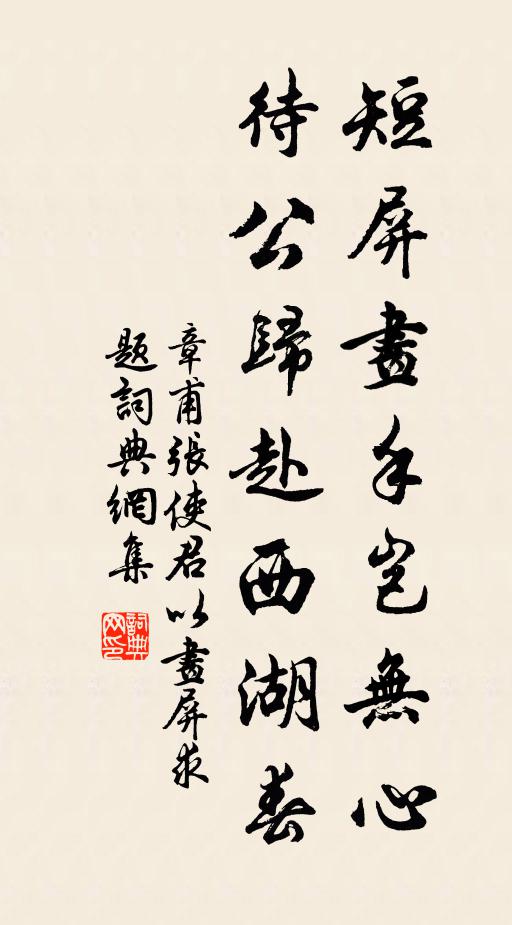 短屏畫手豈無心
待公歸赴西湖春
章甫張使君以畫屏求
題詞典網集
詞典
网印